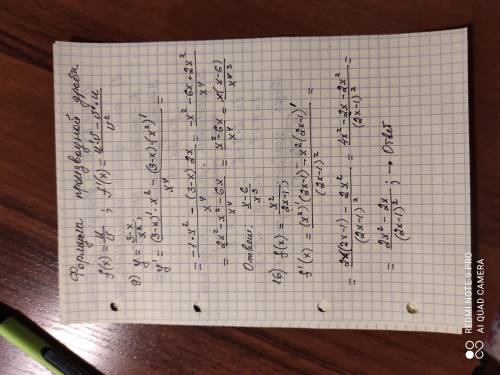 Формула производной дроби
f(x) = u/v ; f'(x) = (u'v - v'·u)/v²
9) y = (3-x)/x² ;
y' = ((3-x)'·x² - (3-x)·(x²)')/x⁴ =
= (-1·x² - (3-x)·2x)/x⁴ = (-x² - 6x + 2x²)/x⁴
= (2x² - x² - 6x)/x⁴ = (x² - 6x)/x⁴ = x(x-6)/x⁴ ³
Ответ: (x-6)/x³
16) f(x) = x²/(2x-1) ;
f'(x) = ((x²)'(2x-1) - x²(2x-1)')/(2x-1)² =
= (2x(2x-1) - 2x²)/(2x-1)² = (4x² - 2x - 2x²)/(2x-1)² =
= (2x² - 2x)/(2x-1)² ; → Ответ
REDMI NOTE 9 PRO
AI QUAD CAMERA